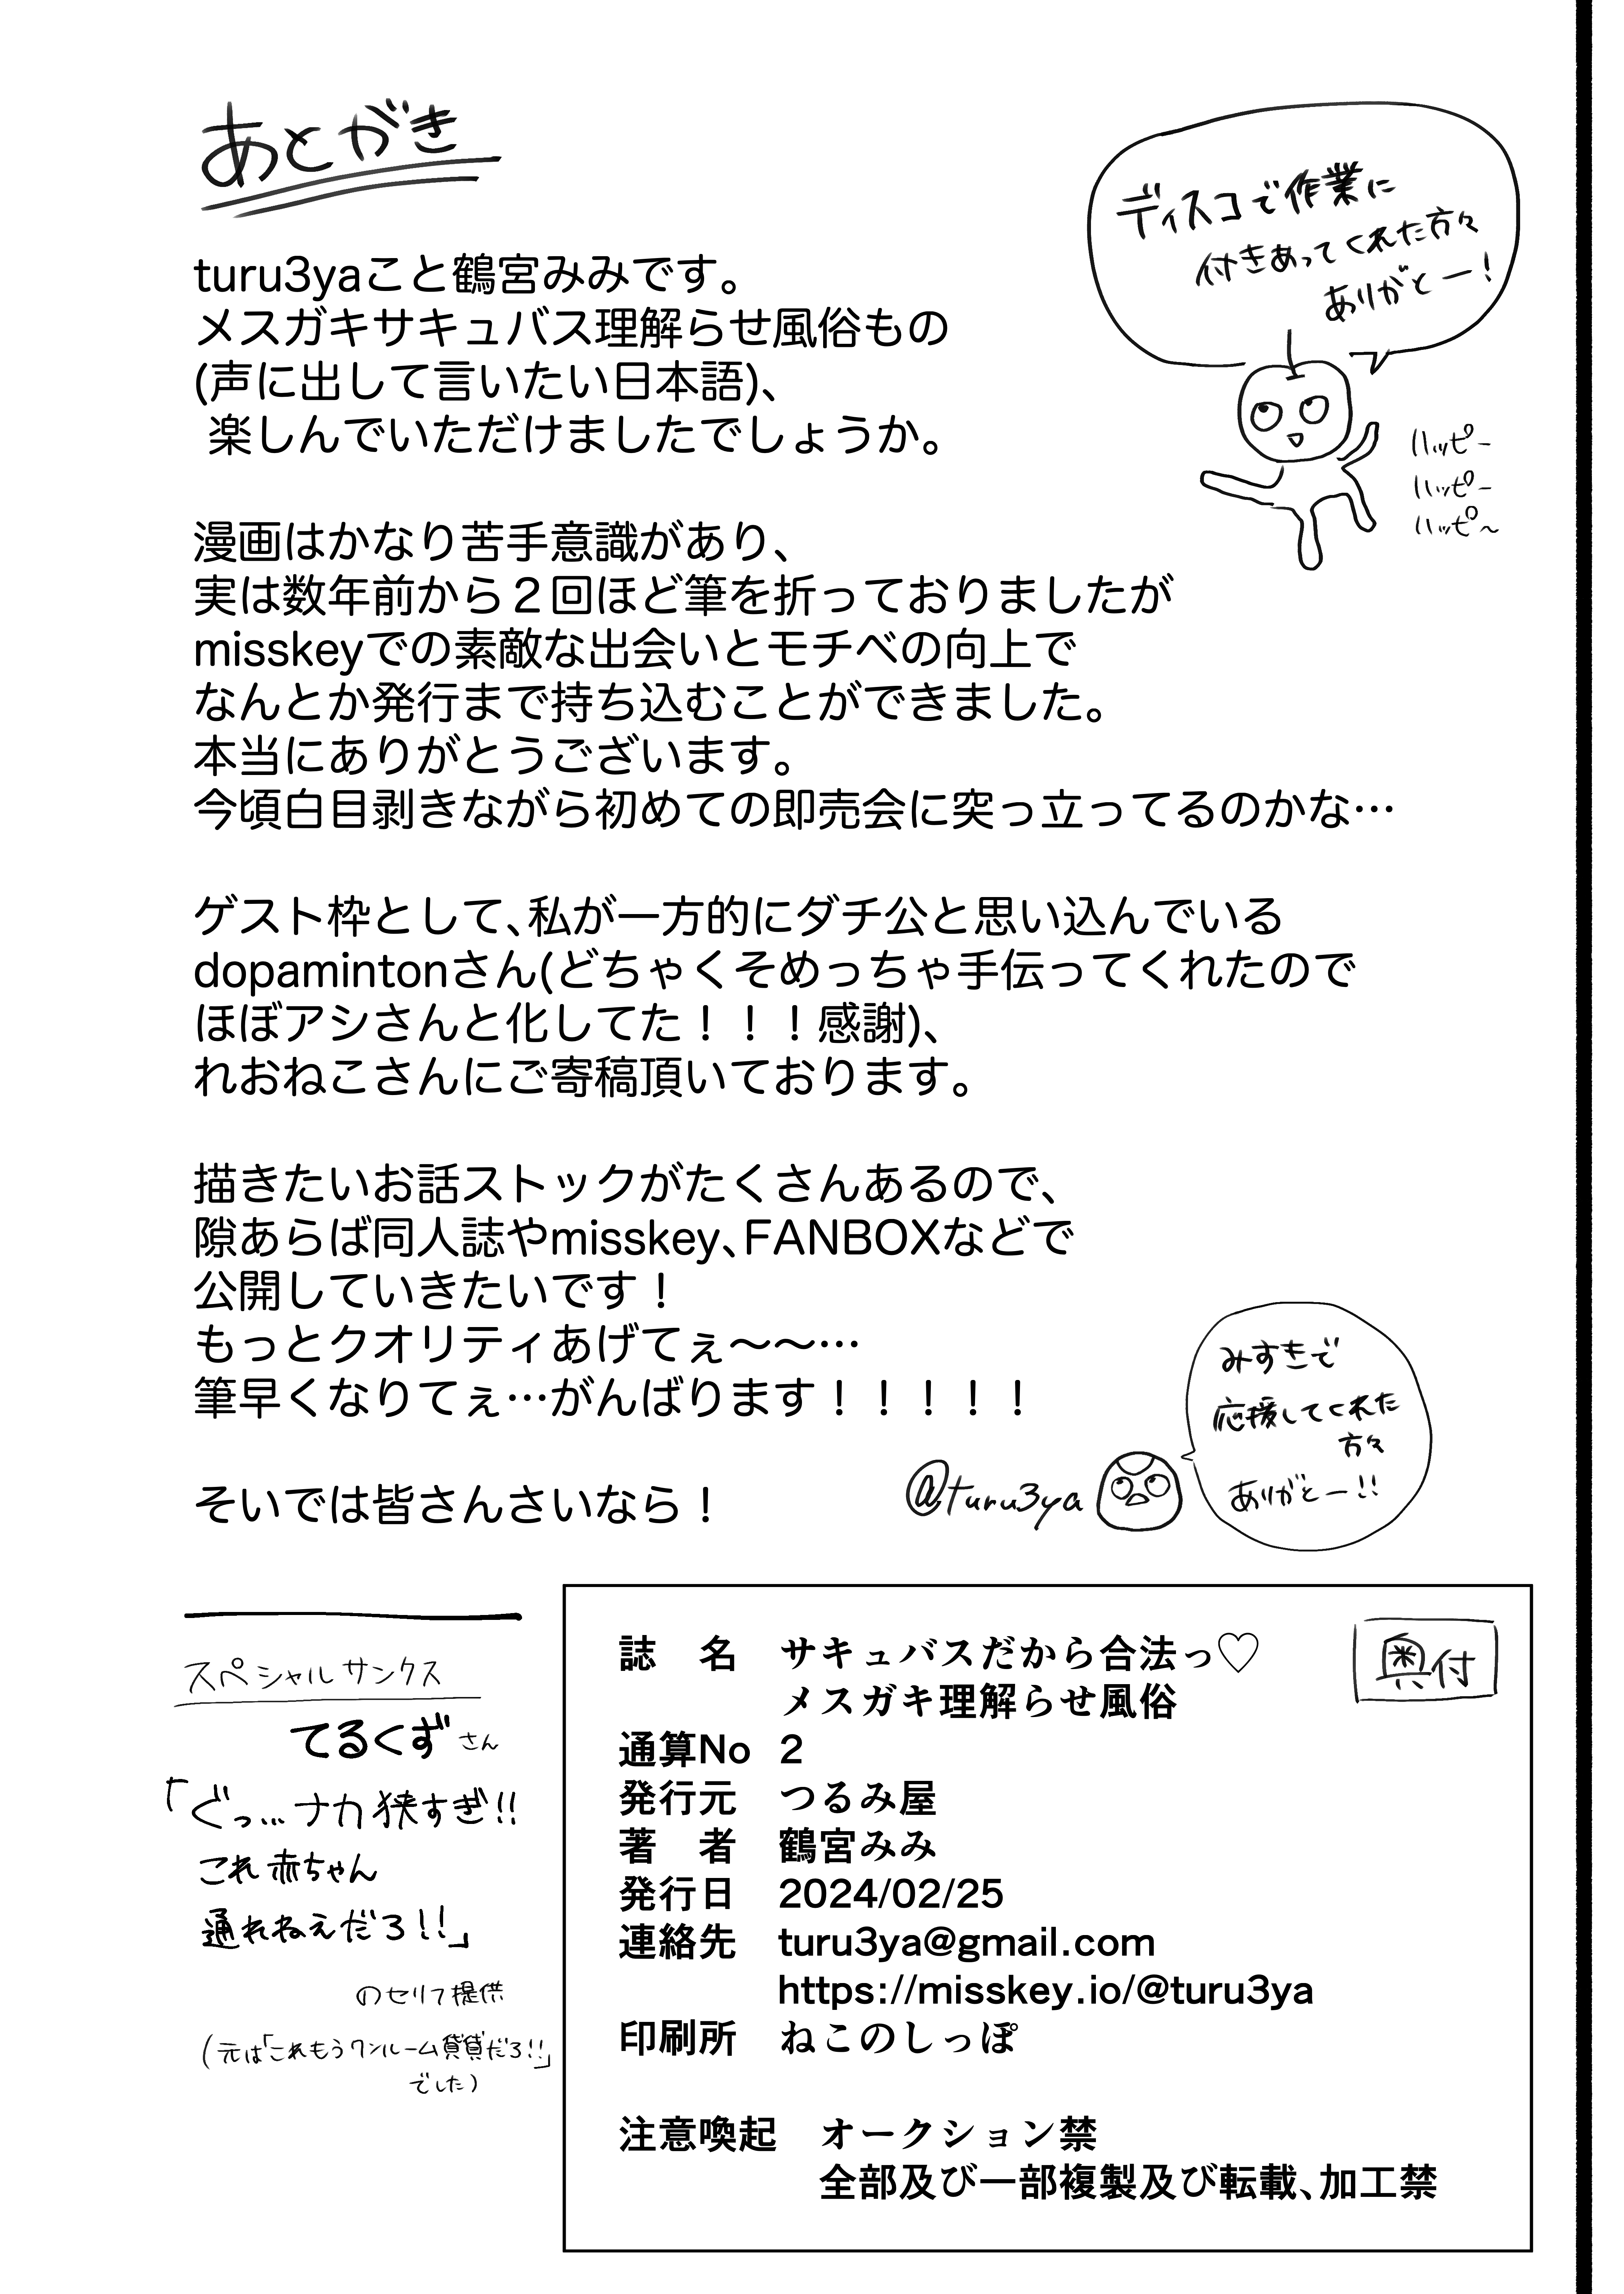 あとがき
turu3yaこと鶴宮みみです。
メスガキサキュバス理解らせ風俗もの
(声に出して言いたい日本語)、
楽しんでいただけましたでしょうか。
ディスコで作業に
付きあってくれた方々
ありがとー!
ハッピー
ハッピー
ハッピ〜
漫画はかなり苦手意識があり、
実は数年前から２回ほど筆を折っておりましたが
misskeyでの素敵な出会いとモチベの向上で
なんとか発行まで持ち込むことができました。
本当にありがとうございます。
今頃白目剥きながら初めての即売会に突っ立ってるのかな…
ゲスト枠として、私が一方的にダチ公と思い込んでいる
dopamintonさん(どちゃくそめっちゃ手伝ってくれたので
ほぼアシさんと化してた！！！感謝)、
れおねこさんにご寄稿頂いております。
描きたいお話ストックがたくさんあるので、
隙あらば同人誌やmisskey、FANBOXなどで
公開していきたいです！
もっとクオリティあげてぇ〜〜…
筆早くなりてぇ…がんばります！！！！！
そいでは皆さんさいなら！
@turu3ya
みすきで
応援してくれた
方々
ありがとー!!
スペシャルサンクス
てるくずさん
「ぐっ…ナカ狭すぎ!!
これ赤ちゃん
通れねえだろ!!」
のセリフ提供
(元は「これもうワンルーム賃貸だろ!!」
でした)
奥付
誌　名　サキュバスだから合法っ♡
メスガキ理解らせ風俗
通算No　2
発行元　つるみ屋
著　者　鶴宮みみ
発行日　2024/02/25
連絡先　turu3ya@gmail.com
https://misskey.io/@turu3ya
印刷所　ねこのしっぽ
注意喚起　オークション禁
全部及び一部複製及び転載、加工禁